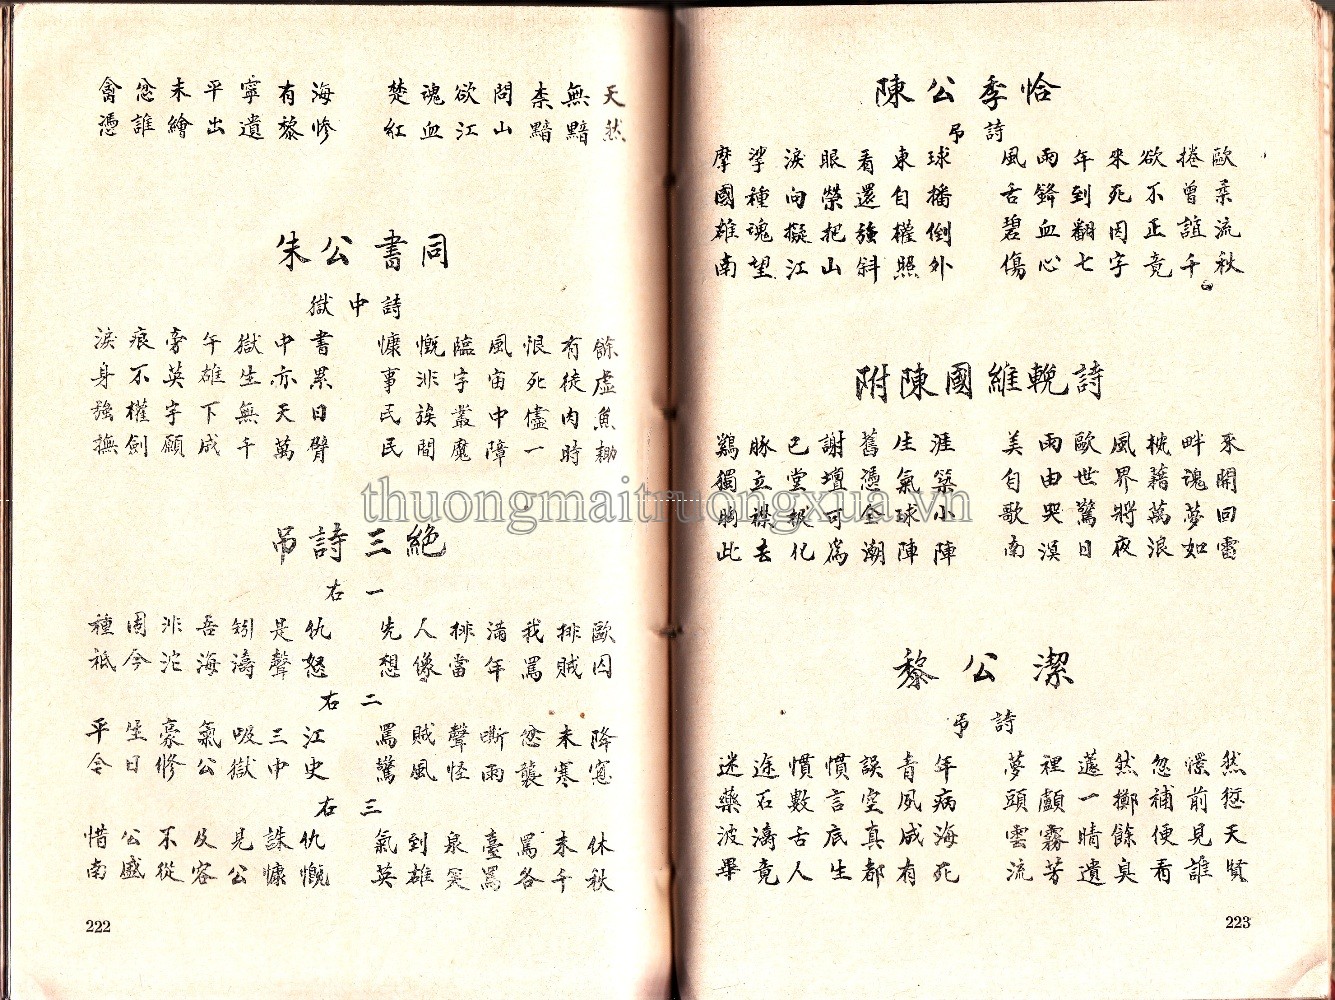 禽忿未平寧有海 楚魂欲問柰無天
憑誰繪出遺黎慘 紅血江山黯黯然
朱公書同
獄中詩
淚痕旁午獄中書 慷慨臨風恨有餘
身不英雄生亦累 事非宇宙死徒虛
強權宇下無天日 民族叢中儘肉魚
撫劍願成千萬臂 民間魔障一時鋤
吊詩三絕
右一
種因非吾矧是仇 先人排滿我排歐
祗今沱海濤聲怒 想像當年罵賊囚
右二
平生豪氣吸三江 罵賊聲嘶忿未降
令日修公獄中史 驚風怪雨襲寒窓
右三
惜公不及見誅仇 氣到泉臺罵未休
南盛從容公慷慨 英雄笑罵各千秋
222
陳公季恰
吊詩
摩挲淚眼看東球 風雨年來欲捲歐
國種向榮還自播 舌鋒到死不曾柔
雄魂擬把強權倒 碧血翻因正誼流
南望江山斜照外 傷心七字竟千秋
附陳國維輓詩
鷄豚巴謝舊生涯 美雨歐風枕畔來
獨立堂壇憑氣築 自由世界藉魂開
胸襟被可全球小 歌哭驚將萬夢回
此去化為潮陣陣 南溟日夜浪如雷
黎公潔
吊詩
迷途慣慣誤青年 夢裡蘧然忽憬然
藥石數言空夙病 頭顱一擲補前愆
波濤舌底真成海 雲霧晴餘便見天
畢竟人生都有死 流芳遺臭看誰賢
223
thuongmaitruongxua.vn